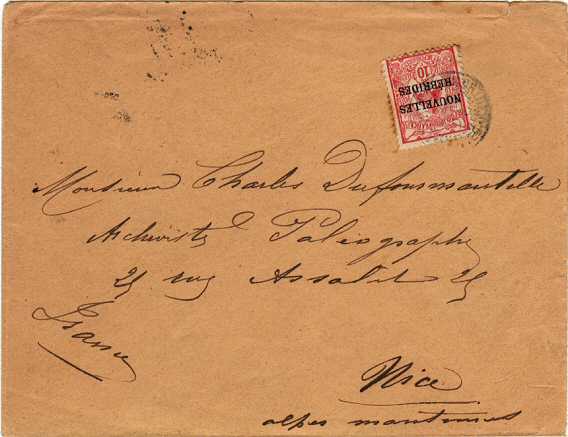 10
NOUVELLES
HÉBRIDES
Monsieur Charles Dufourmantelle
Archiviste Paléographe
25 rue Assalit 25
France
Nice
alpes maritimes